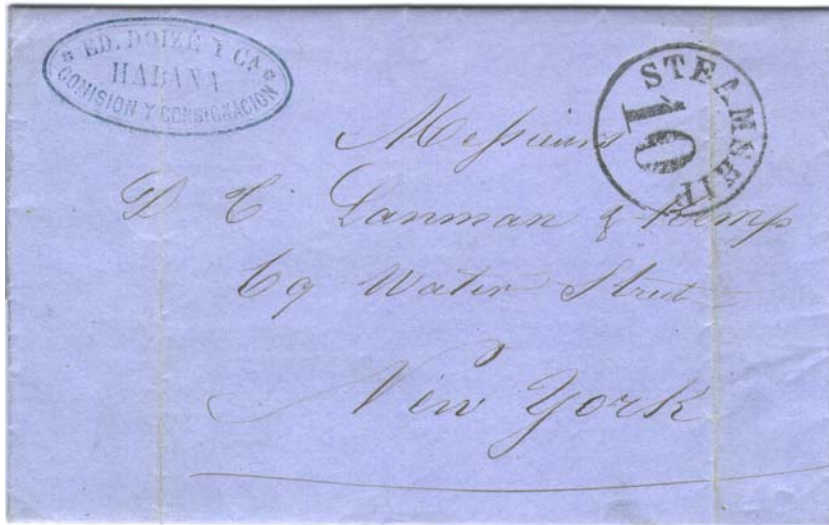 ED. DOIZÉ Y CA.
HABANA
COMISION Y CONSIGNACION
STEAMSHIP
10
Messieurs
D. C. Lanman & Kemp
69 Water Street
New York